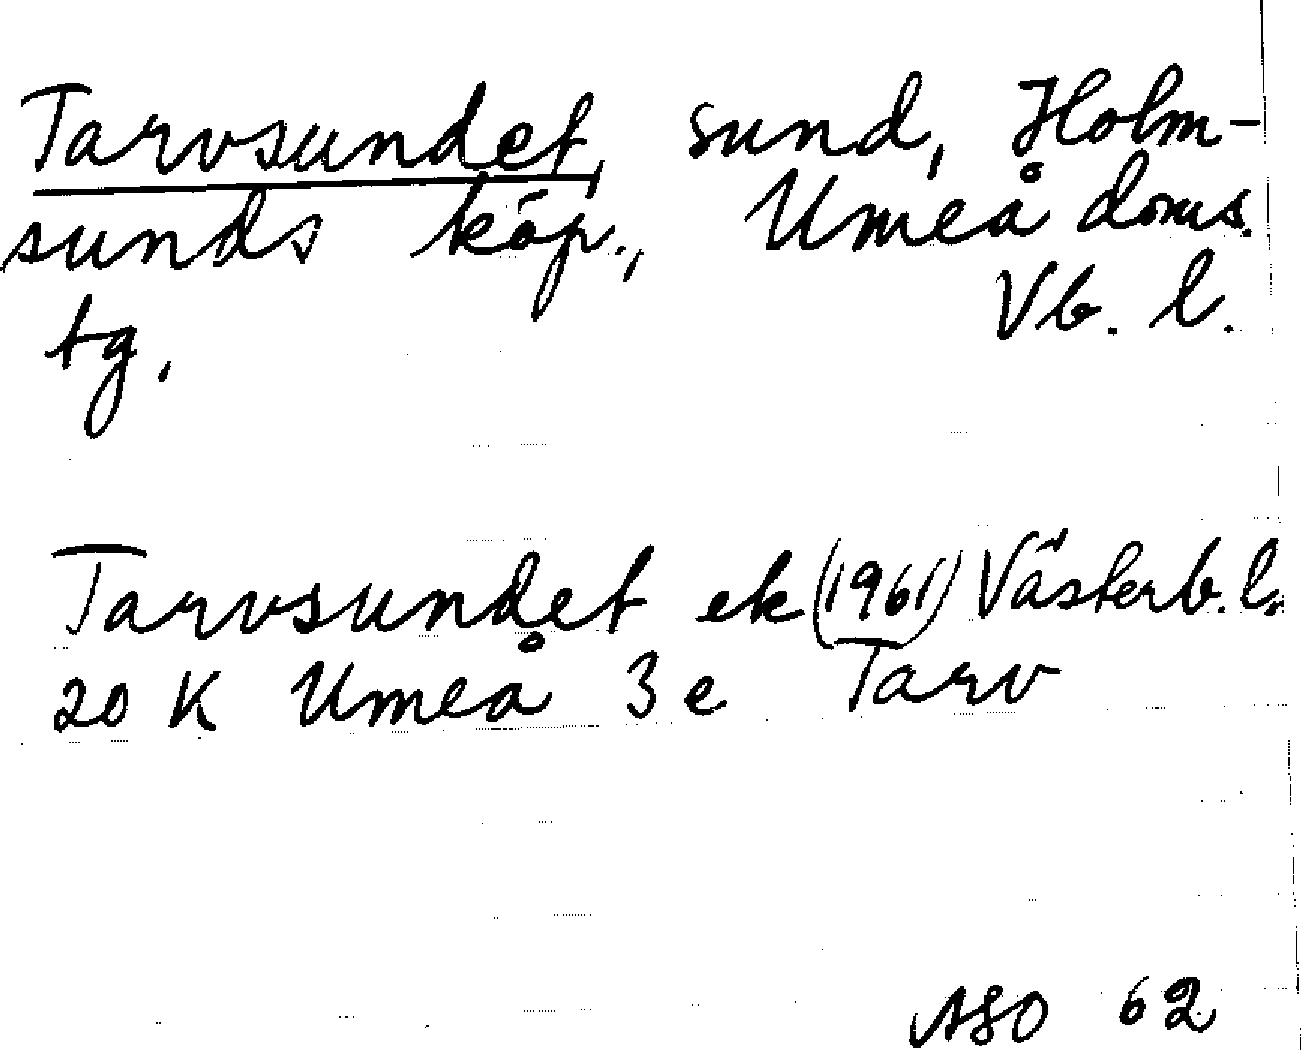 Tarvsundet, sund, Holm-
sunds köp., Umeå doms.
tg, Vb. l.
Tarvsundet ek (1961) Västerb. l.
20 K Umeå 3 e Tarv
ASO 62